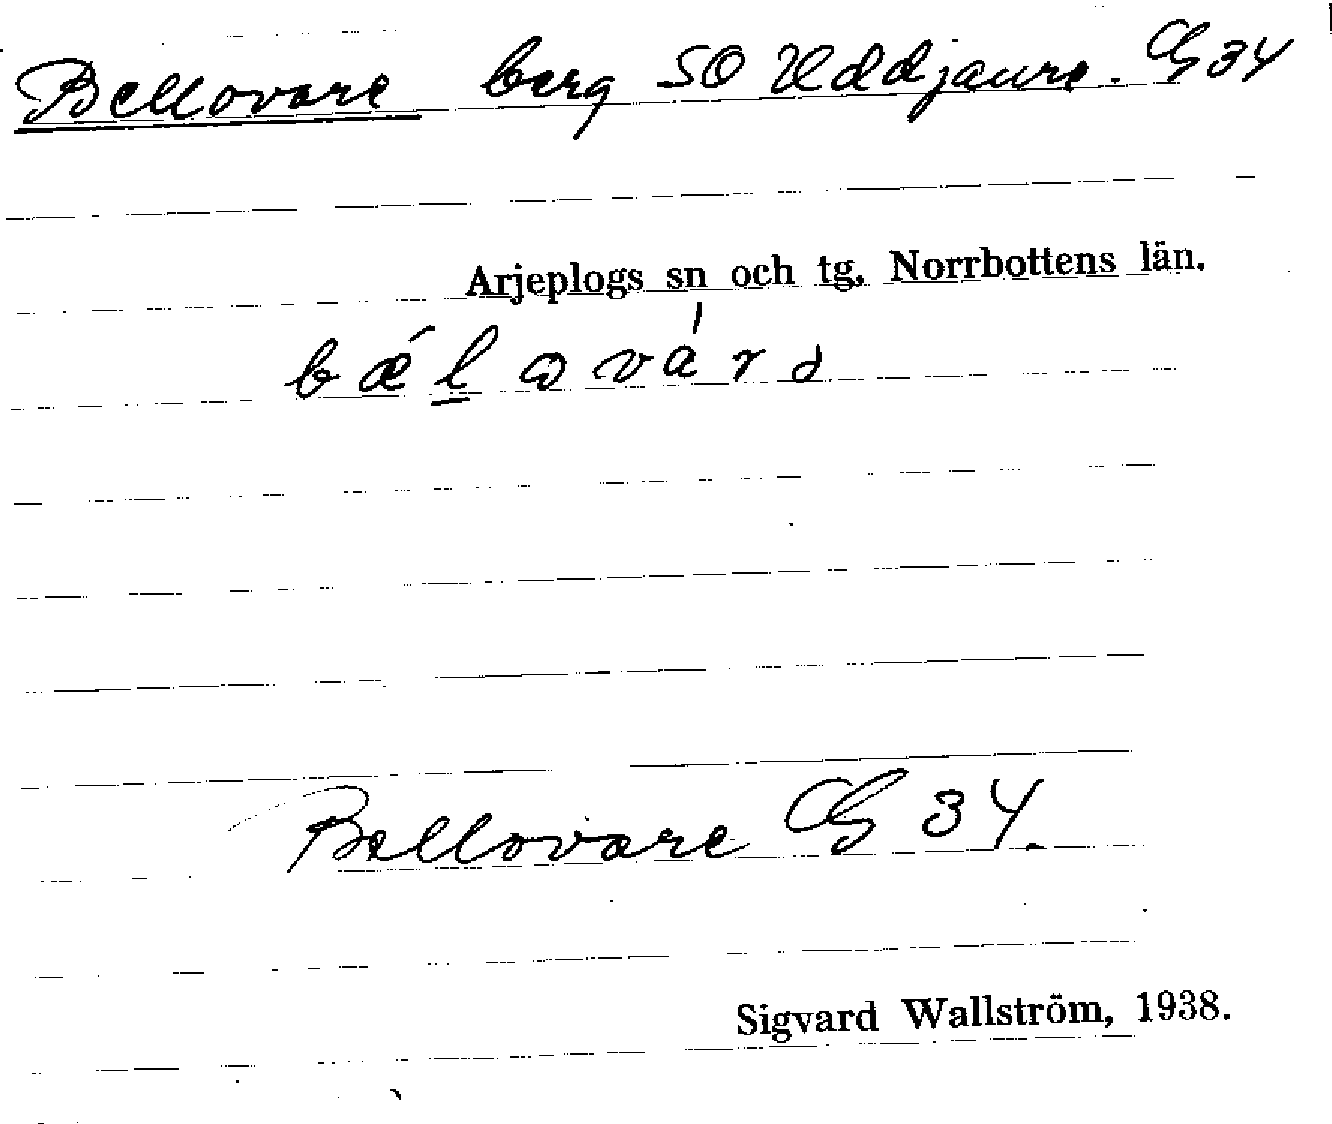 Bellovare berg SO Uddjaure. G 34
Arjeplogs sn och tg. Norrbottens län.
Bellovare G 34.
Sigvard Wallström, 1938.